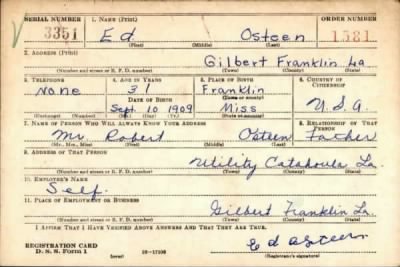 SERIAL NUMBER 1. NAME (Print) ORDER NUMBER
3351 Ed Osteen 1581
(First) (Middle) (Last)
2. ADDRESS (Print)
Gilbert Franklin La
(Number and street or R. F. D. number) (Town) (County) (State)
3. TELEPHONE 4. AGE IN YEARS 5. PLACE OF BIRTH 6. COUNTRY OF CITIZENSHIP
None 31 Franklin
DATE OF BIRTH (Town or county)
Sept. 10 1909 Miss U.S.A.
(Exchange) (Number) (Mo.) (Day) (Yr.) (State or country)
7. NAME OF PERSON WHO WILL ALWAYS KNOW YOUR ADDRESS 8. RELATIONSHIP OF THAT PERSON
Mr. Robert Osteen Father
(Mr., Mrs., Miss) (First) (Middle) (Last)
9. ADDRESS OF THAT PERSON
Utility Catahoula La.
(Number and street or R. F. D. number) (Town) (County) (State)
10. EMPLOYER'S NAME
Self.
11. PLACE OF EMPLOYMENT OR BUSINESS
Gilbert Franklin La.
(Number and street or R. F. D. number) (Town) (County) (State)
I AFFIRM THAT I HAVE VERIFIED ABOVE ANSWERS AND THAT THEY ARE TRUE.
REGISTRATION CARD
D. S. S. Form 1 (over) Ed Osteen
(Registrant's signature)